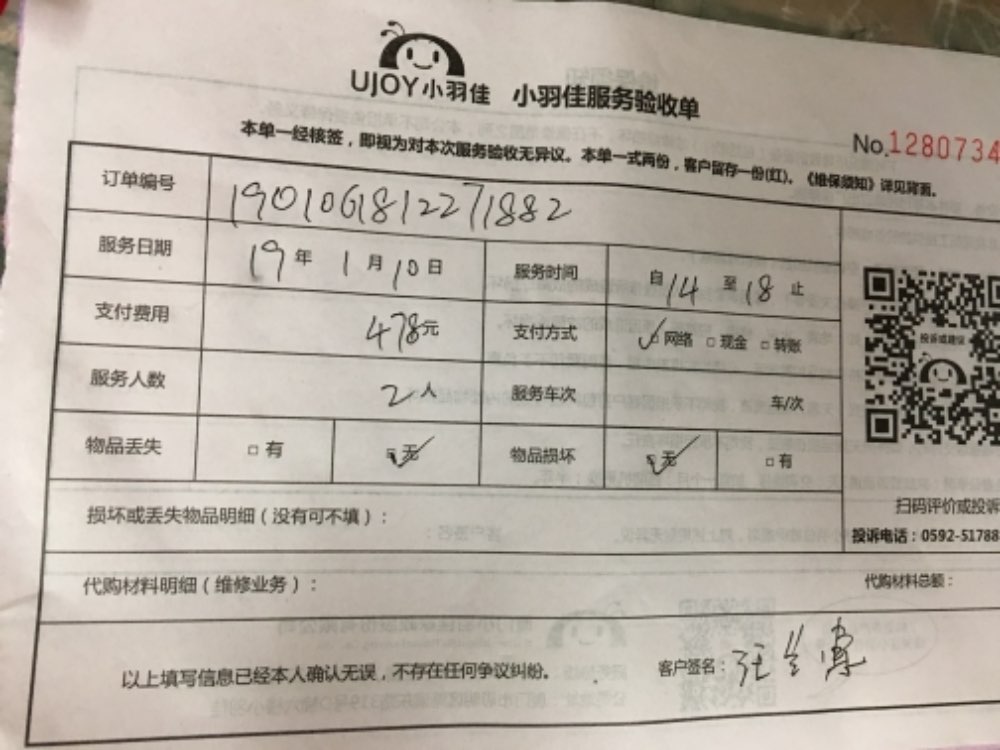 UJOY小羽佳 小羽佳服务验收单
No.1280734
本单一经核签，即视为对本次服务验收无异议。本单一式两份，客户留存一份(红)。《维保须知》详见背面。
订单编号 190106181227188​2
服务日期 19年1月10日 服务时间 自14至18止
支付费用 478元 支付方式 ☑网络 □现金 □转账
服务人数 2人 服务车次 车/次
物品丢失 □有 ☑无 物品损坏 ☑无 □有
投诉或建议
扫码评价或投诉
损坏或丢失物品明细（没有可不填）：
投诉电话：0592-51788
代购材料明细（维修业务）： 代购材料总额：
以上填写信息已经本人确认无误，不存在任何争议纠纷。 客户签名：